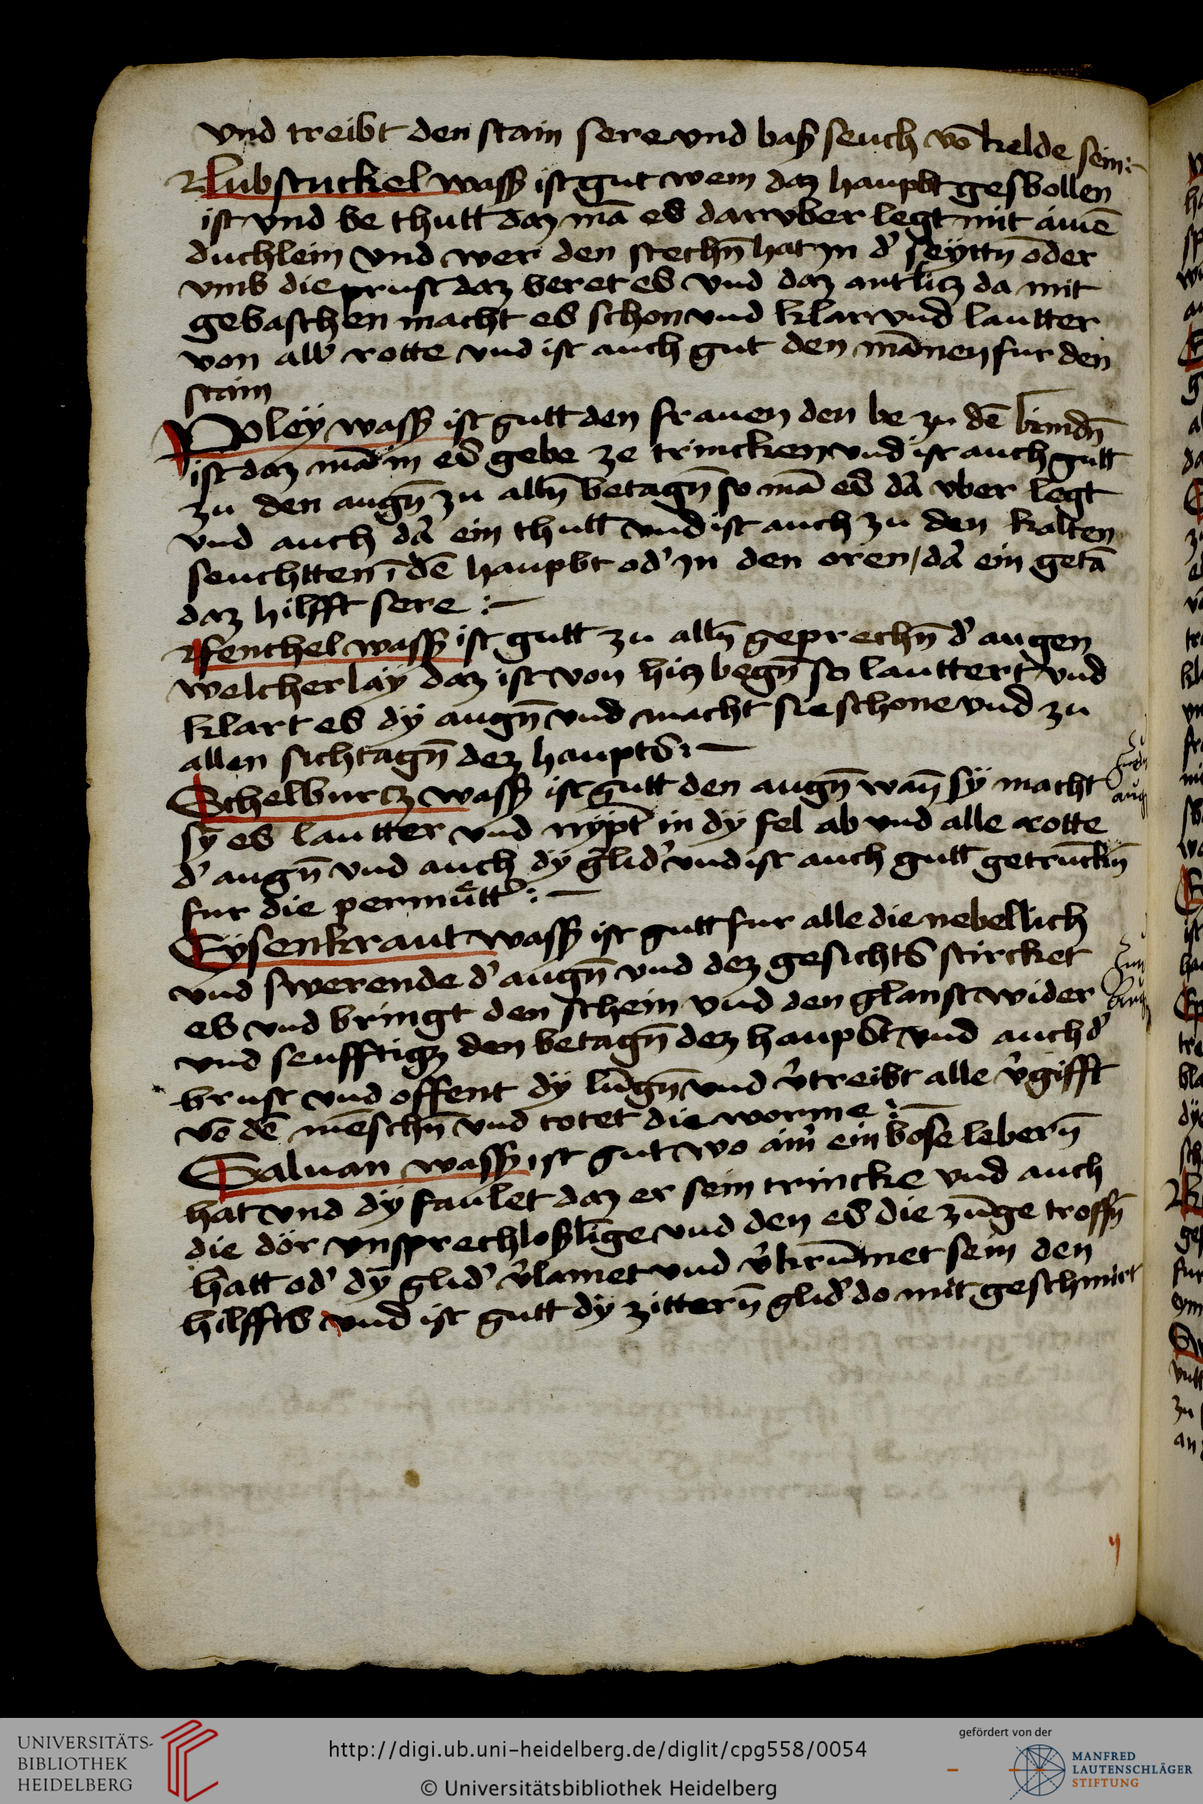 vnd treibt den stain sere vnd baß seuch vō kelde sein :~
Lubstuckel wasß ist gut wem daz haupbt gesbollen
ist vnd be thutt daz mā es darvber legt mit ainē
duchlein vnd wer den stechn̄ hat in d' seyttn oder
vmb die prust daz beret es vnd daz antlicz da mit
gebaschen macht es schon vnd klar vnd lautter
von all' rotte vnd ist auch gut den mānen fur den
stain
Poleÿ wasß ist gutt den frauen den be zu dē kindn̄
ist daz mā in es gebe ze trincken vnd ist auch gutt
zu den augn̄ zu alln̄ betagn̄ so mā es dā vber legt
vnd auch dā ein thutt vnd ist auch zu den kalten
seuchtten ī dē haupbt od' in den oren / dā ein getā
daz hilfft sere :~
Fenchel wasß ist gutt zu alln̄ geprechn̄ d' augen
welcherlaÿ daz ist von hicz begn̄ so lauttert vnd
klart es dÿ augn̄ vnd macht sie schone vnd zu
allen sichtagn̄ dez haupts :~
Schelburcz wasß ist gutt den augn̄ wan̄ sÿ macht
sÿ es lautter vnd nÿpt in dÿ fel ab vnd alle rotte
d' augn̄ vnd auch dÿ glid' vnd ist auch gutt getrunckn̄
fur die permutt' :~
Eÿsenkraut wasß ist gutt fur alle die nebellich
vnd swerende d' augn̄ vnd dez gesichts stircket
es vnd bringt den schein vnd den glanst wider
vnd seufftigz den betagn̄ dez haupbt vnd auch d'
brust vnd offent dÿ lūgn̄ vnd v'treibt alle v'gifft
vō dē mēschn̄ vnd totet die worme :~
Saluan wasß ist gut wo aim' ein bose lebern̄
hat vnd dÿ faulet daz er sein trincke vnd auch
die dor vnsprechloß lige vnd den es die zūge troffn̄
hatt od' dÿ glid' v'lamet vnd v'krūmet sein den
hilffts vnd ist gutt dÿ zittern̄ glid' do mit geschmirt
UNIVERSITÄTS-
BIBLIOTHEK
HEIDELBERG
http://digi.ub.uni-heidelberg.de/diglit/cpg558/0054
© Universitätsbibliothek Heidelberg
gefördert von der
MANFRED
LAUTENSCHLÄGER
STIFTUNG